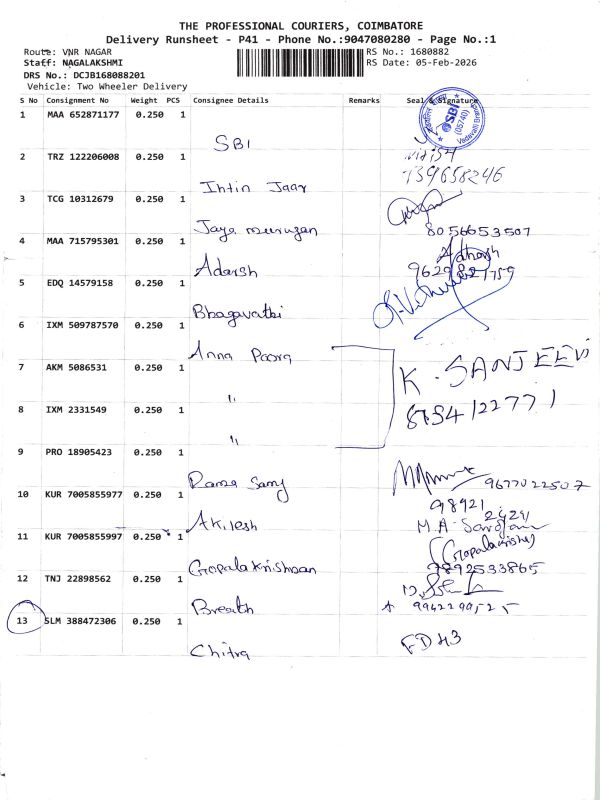 THE PROFESSIONAL COURIERS, COIMBATORE
Delivery Runsheet - P41 - Phone No.:9047080280 - Page No.:1
Route: VNR NAGAR RS No.: 1680882
Staff: NAGALAKSHMI RS Date: 05-Feb-2026
DRS No.: DCJB168088201
Vehicle: Two Wheeler Delivery
S No Consignment No Weight PCS Consignee Details Remarks Seal & Signature
1 MAA 652871177 0.250 1
SBI
SBI (05740)
2 TRZ 122206008 0.250 1
Jaar
3 TCG 10312679 0.250 1
Jaya murugan 8056653507
4 MAA 715795301 0.250 1 Adharsh
Adarsh
5 EDQ 14579158 0.250 1
Bhagavathi
6 IXM 509787570 0.250 1
Anna Poora
7 AKM 5086531 0.250 1 K. SANJEEVI
"
8 IXM 2331549 0.250 1
"
9 PRO 18905423 0.250 1
Samy 9677022507
10 KUR 7005855977 0.250 1 98921
Akilesh M.A.
11 KUR 7005855997 0.250 1 (Gopalakrishnan)
Gopalakrishnan
12 TNJ 22898562 0.250 1
Breath
13 SLM 388472306 0.250 1
Chitra FD43